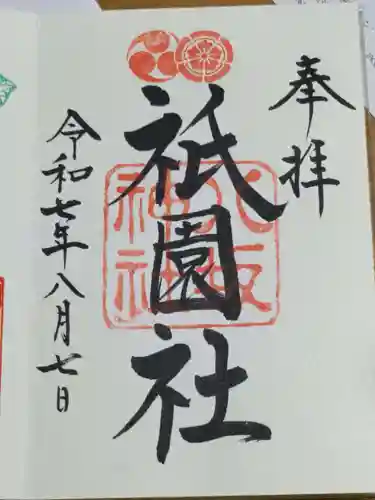 奉拝
祇園社
八坂
神社
令和七年八月七日